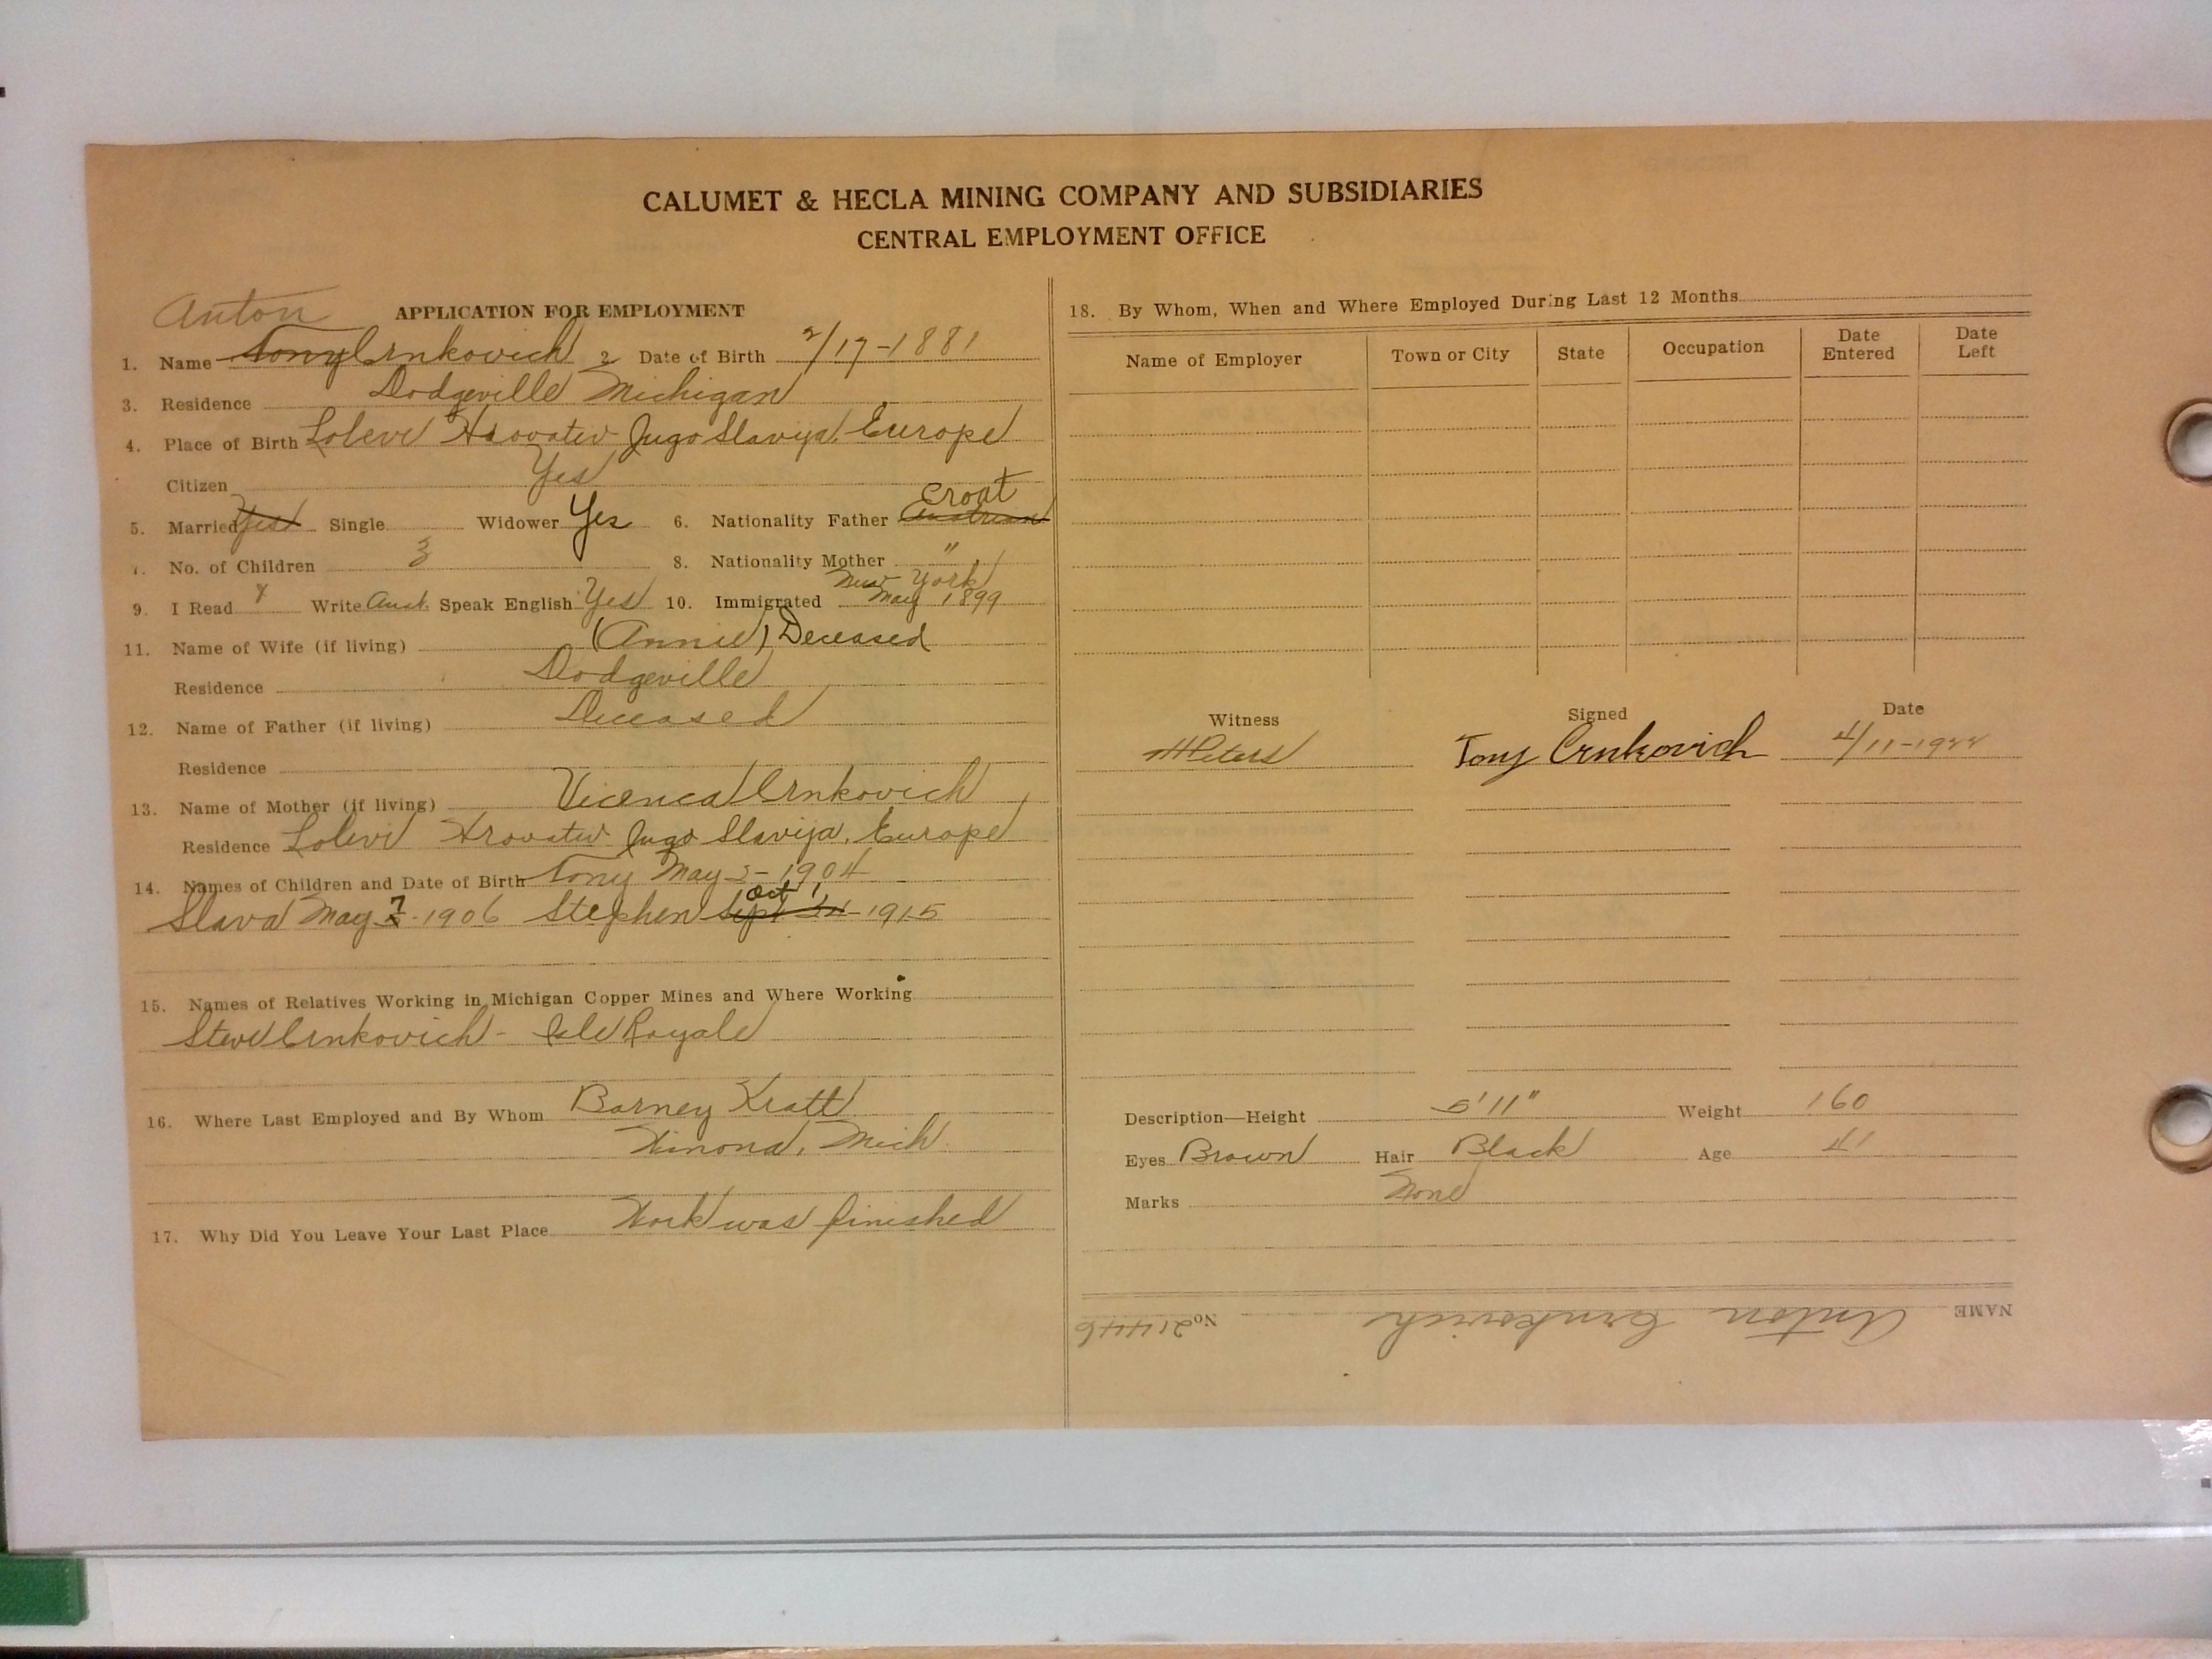 CALUMET & HECLA MINING COMPANY AND SUBSIDIARIES
CENTRAL EMPLOYMENT OFFICE
Anton
APPLICATION FOR EMPLOYMENT
1. Name Tony Crnkovich 2 Date of Birth 2/17-1881
3. Residence Dodgeville Michigan
4. Place of Birth Loleve Hrovatev Jugo Slavija, Europe
Citizen Yes
Croat
5. Married Yes Single Widower Yes 6. Nationality Father Austrian
7. No. of Children 3 8. Nationality Mother "
New York
9. I Read Write Aust. Speak English Yes 10. Immigrated May 1899
11. Name of Wife (if living) (Annie) Deceased
Residence Dodgeville
12. Name of Father (if living) Deceased
Residence
13. Name of Mother (if living) Vicenca Crnkovich
Residence Lolevi Hrovatev Jugo Slavija, Europe
14. Names of Children and Date of Birth Tony May 5-1904
Slava May 7-1906 Stephen Sept Oct 1 1915
15. Names of Relatives Working in Michigan Copper Mines and Where Working
Steve Crnkovich - Isle Royale
16. Where Last Employed and By Whom Barney Kratt
Winona, Mich
17. Why Did You Leave Your Last Place Work was finished
18. By Whom, When and Where Employed During Last 12 Months
Name of Employer Town or City State Occupation Date Entered Date Left
Witness Signed Date
HPeters Tony Crnkovich 4/11-1922
Description—Height 5'11" Weight 160
Eyes Brown Hair Black Age 41
Marks None
NAME Anton Crnkovich No 21446